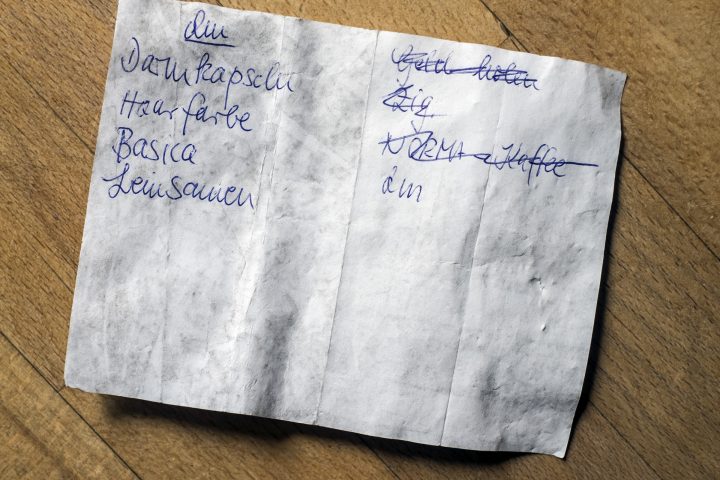 dm
Darmkapseln
Haarfarbe
Basica
Leinsamen
Geld holen
Zig.
NORMA - Kaffee
dm